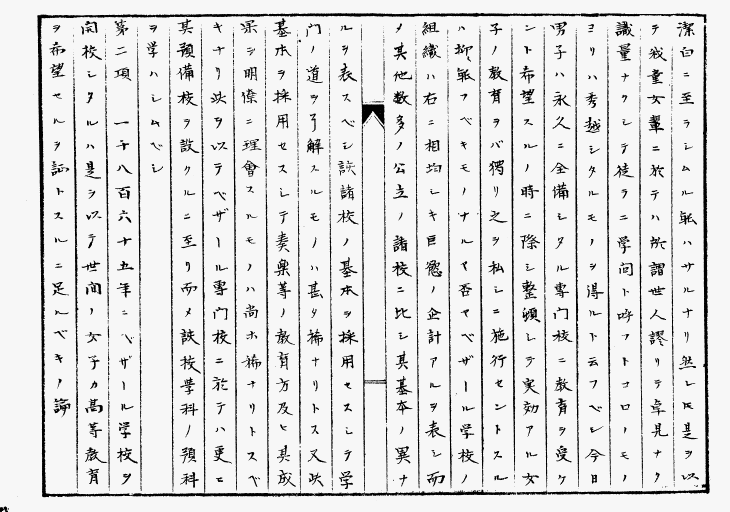 潔白ニ至ラシムル能ハサルナリ然レ𪜈是ヲ以
テ我童女輩ニ於テハ所謂世人謬リテ卓見ナク
識量ナクシテ徒ラニ学問ト呼フトコロノモノ
ヨリハ秀越シタルモノヲ得ルト云フベシ今日
男子ハ永久ニ全備シタル専門校ニ教育ヲ受ケ
ント希望スルノ時ニ際シ整頓シテ実効アル女
子ノ教育ヲバ獨リ之ヲ私シニ施行セントスル
ハ抑能フベキモノナルヤ否ヤベザール学校ノ
組織ハ右ニ相均シキ巨慾ノ企計アルヲ表シ而
メ其他数多ノ公立ノ諸校ニ比シ其基本ノ異ナ
ルヲ表スベシ該諸校ノ基本ヲ採用セスシテ学
門ノ道ヲ了解スルモノハ甚タ稀ナリトス又此
基本ヲ採用セスシテ奏楽等ノ教育方及ヒ其成
果ヲ明僚ニ理會スルモノハ尚ホ稀ナリトスベ
キナリ此ヲ以テベザール専門校ニ於テハ更ニ
其預備校ヲ設クルニ至リ而メ該校學科ノ預科
ヲ学ハシムベシ
第二項　一千八百六十五年ニベザール学校ヲ
開校シタルハ是ヲ以テ世間ノ女子カ高等教育
ヲ希望セルヲ証トスルニ足ルベキノ論